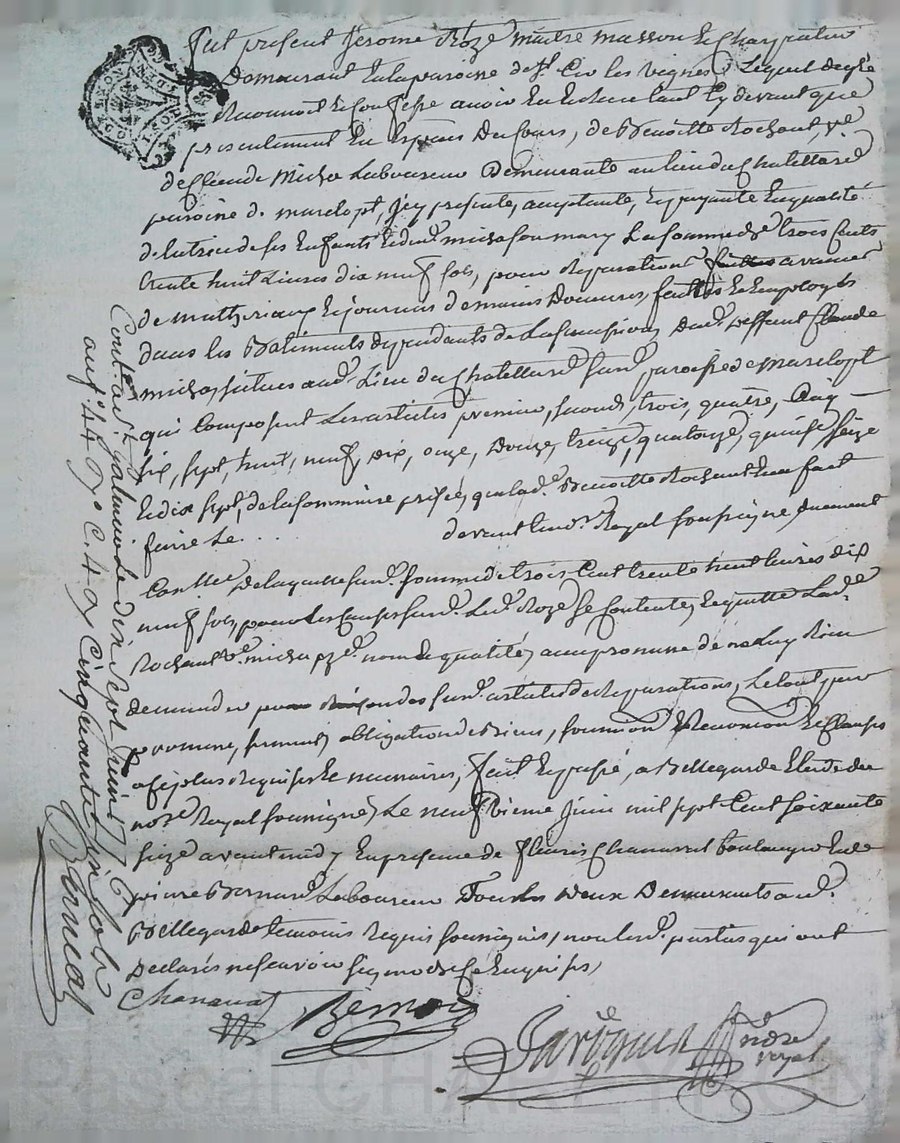 fut present Jerome Rozé maitre masson & Charpatier
Demeurant en la paroisse de st Cir les vignes, Lequel de gré
Reconnoit & confesse avoir eu & receu tant cy devant que
presentement en especes Du cours, de Benoitte Rochant, ve.
de Claude Micha Laboureur Demeurante au lieu du Chatellard
paroisse de marclopt, icy presente, acceptante, & payante en qualité
de tutrice de ses Enfants & dud. micha son mary La somme de trois Cents
trente huit Livres dix neuf sols, pour Reparations avances
de matheriaux & journées de mains Doeuvres, faittes & employés
dans les Batiments dependants de La succession Dud. deffunt Claude
micha, situés aud. Lieu du Chatellard susd. paroisse de marclopt
qui Composent Les articles premier, second, trois, quatre, Cinq
six, sept, huit, neuf, dix, onze, Douze, treize, quatorze, quinse, seize
& dix sept, de la sommaire prisée, que lad. Benoitte Rochant en a fait
faire Le . . . devant Le nore. Royal soussigné duement
Conllé De laquelle susd. somme de trois Cent trente huit livres dix
neuf sols, pour Les Causes susd. Led. Rozé se Contente, & quitte Lad.
Rochant ve. micha nom & qualité, avec promesse de ne Luy Rien
demander des susd. articles de Reparations, Le tout par
promesse, serment, obligation de Biens, soumission & Renonciation & Clauses
a ce plus Requises & necessaires, fait & passé, a Bellegarde Etude du
nore. Royal soussigné, Le neufvieme Juin mil sept Cent soixante
seize avant midy En presence de fleuris Chanavat boulanger & de
pierre Bernard Laboureur Tous les Deux Demeurants aud.
Bellegarde temoins Requis soussignés, non lesd. parties qui ont
Declarés ne scavoir signer de ce Enquises,
Chanavat
nore
royal
Conlé a st galmier Le dix sept Juin 1776
Cinquante Cinq sols